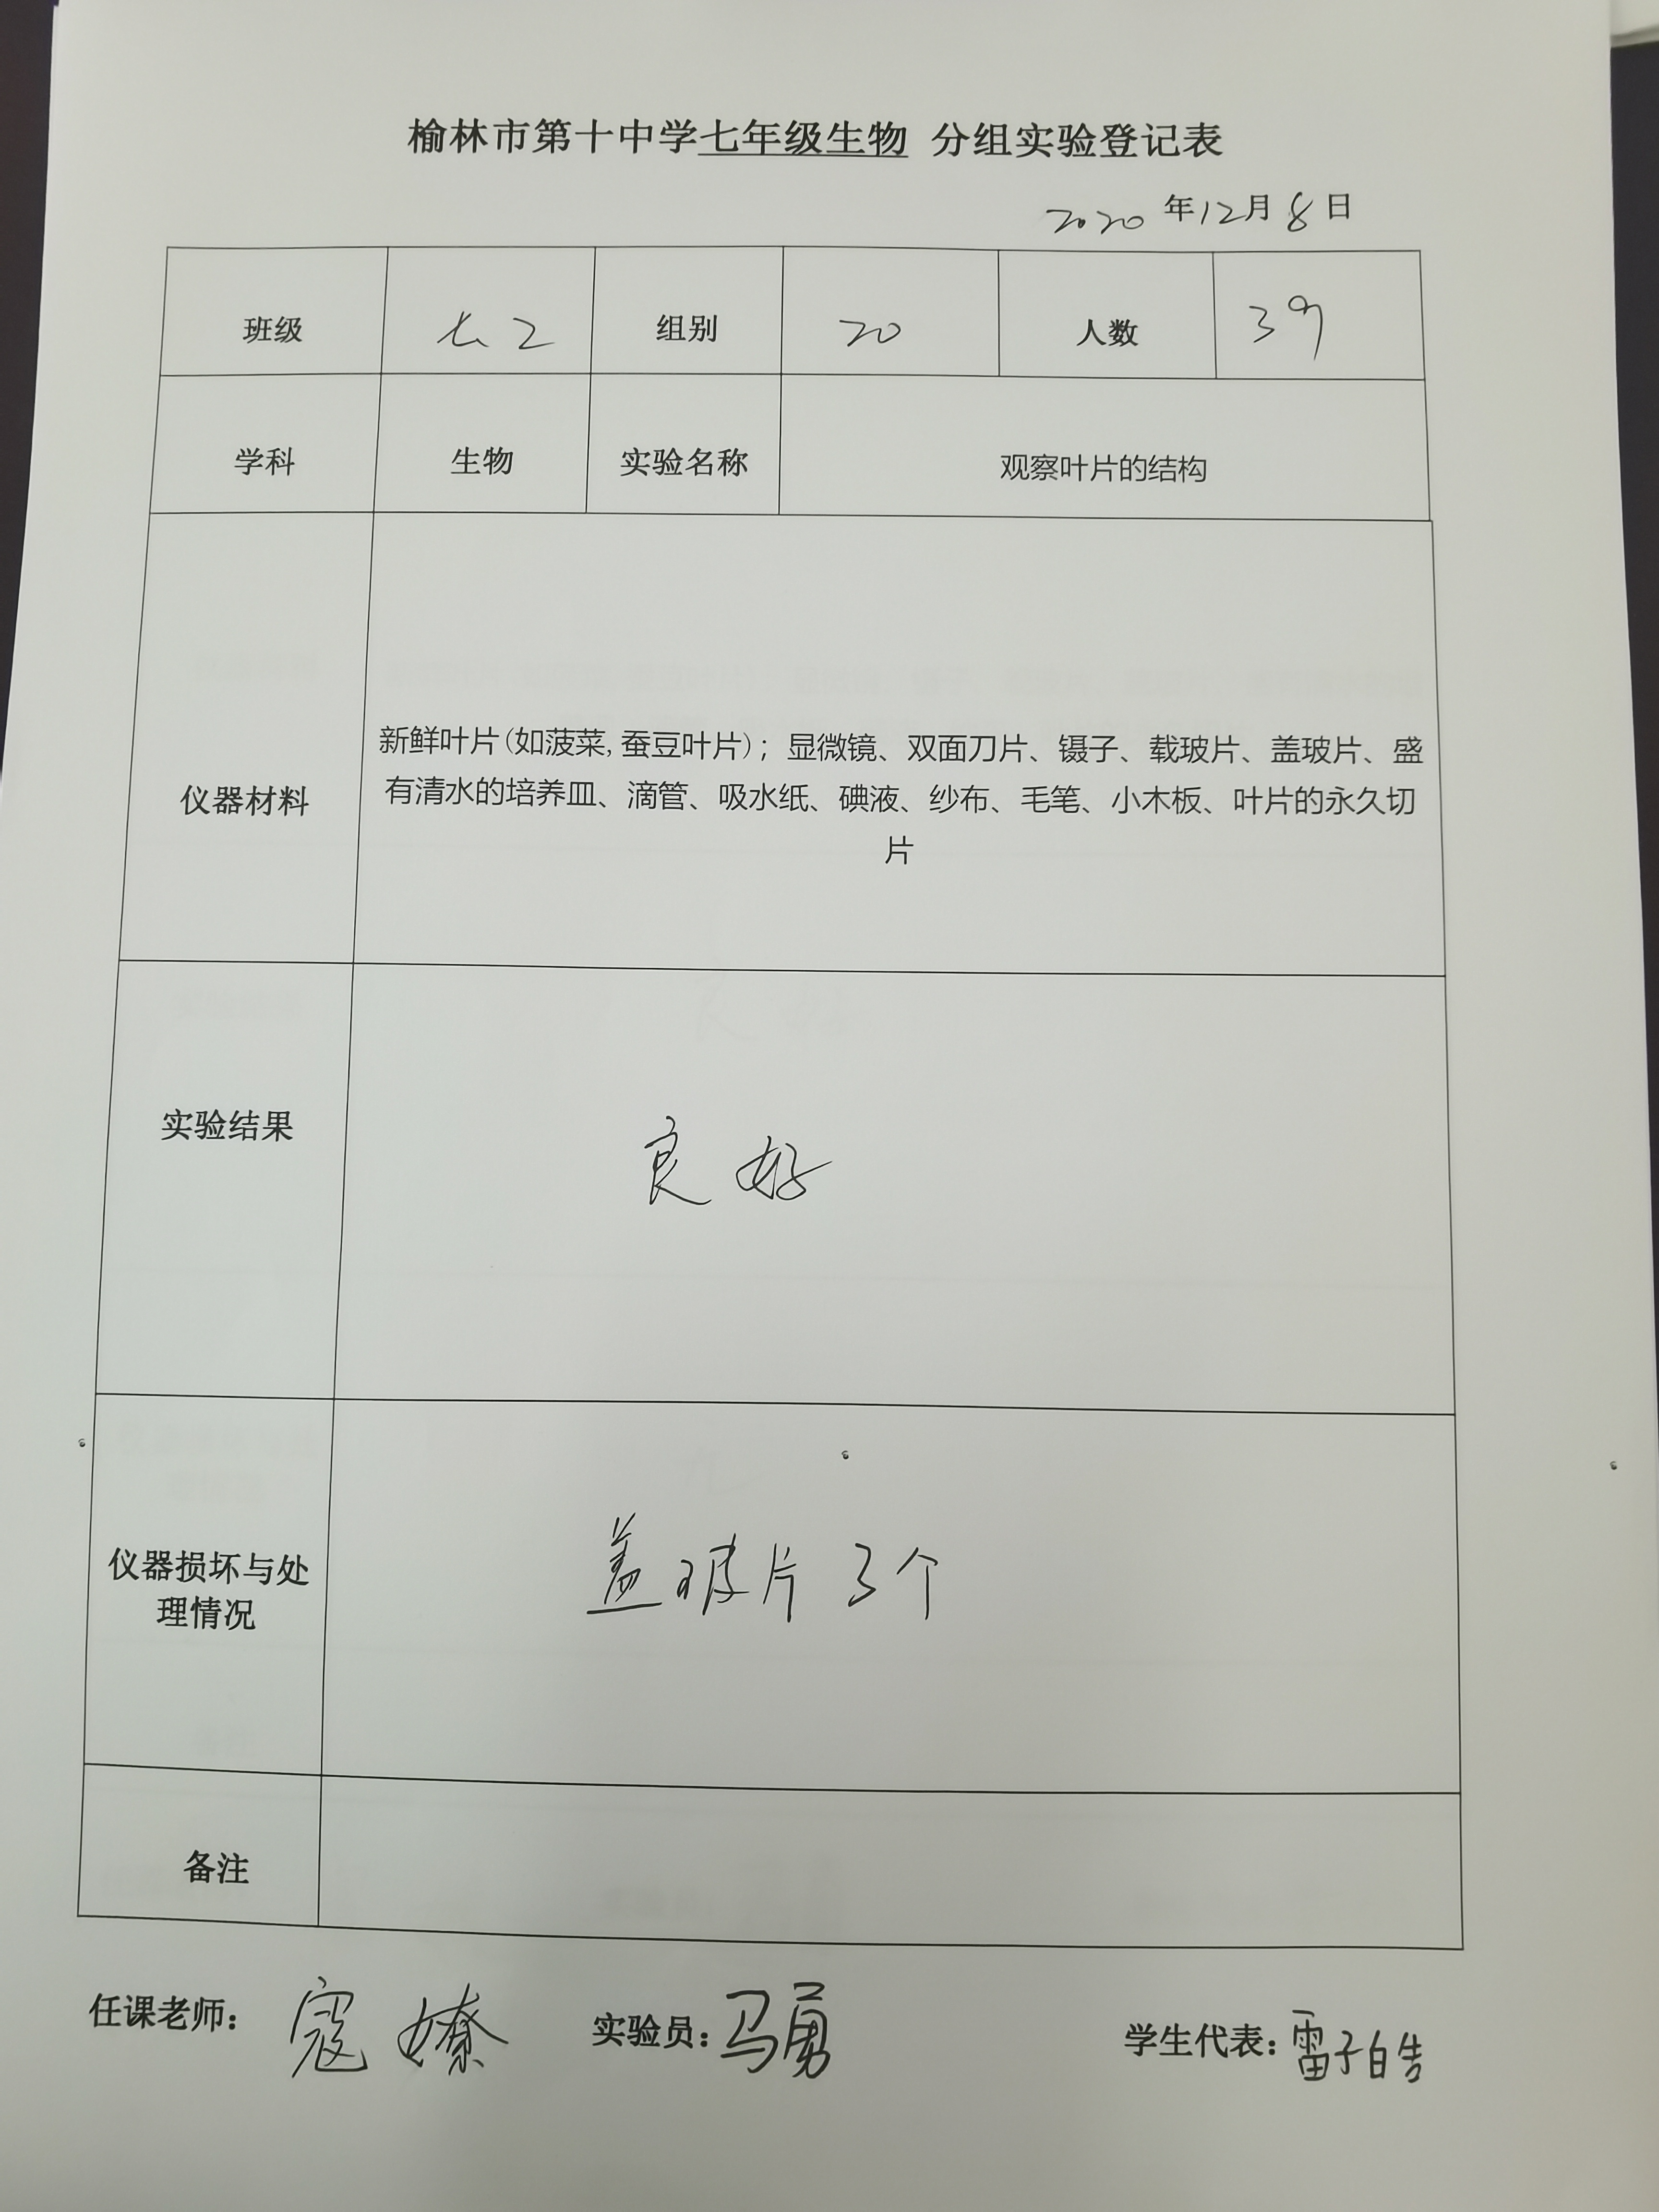 榆林市第十中学七年级生物 分组实验登记表
2020 年12月8日
班级 七2 组别 20 人数 39
学科 生物 实验名称 观察叶片的结构
仪器材料
新鲜叶片(如菠菜,蚕豆叶片)；显微镜、双面刀片、镊子、载玻片、盖玻片、盛
有清水的培养皿、滴管、吸水纸、碘液、纱布、毛笔、小木板、叶片的永久切
片
实验结果 良好
仪器损坏与处
理情况
盖玻片 3个
备注
任课老师： 寇嫽 实验员：马勇 学生代表：雷子皓